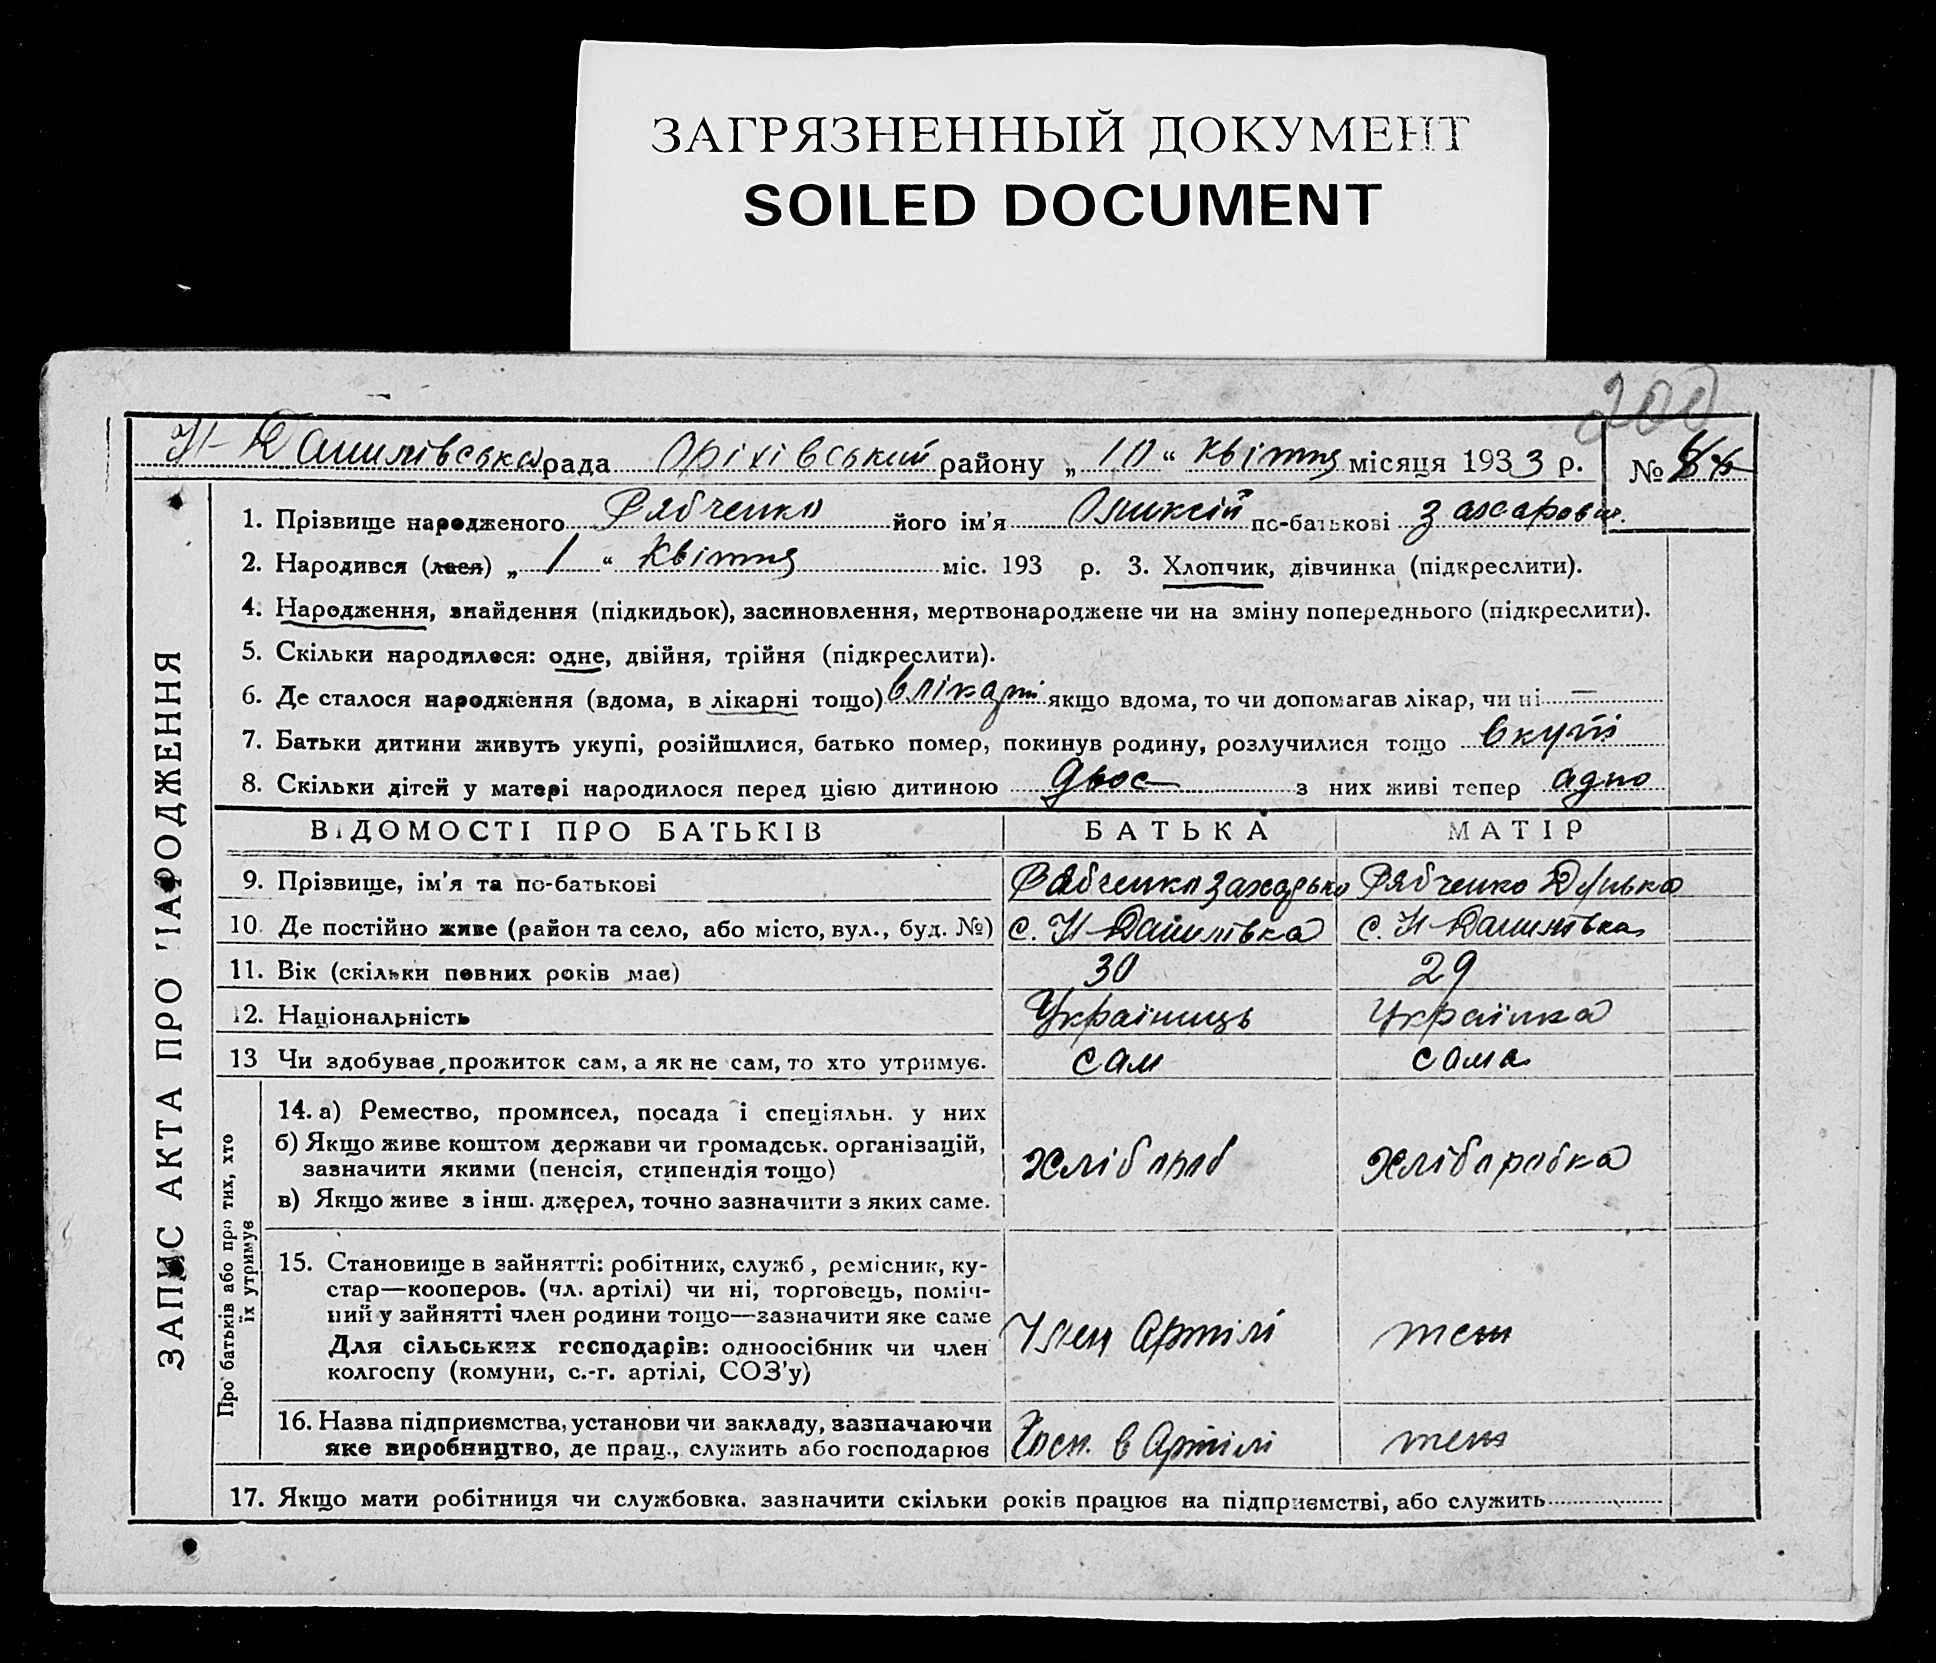 ЗАГРЯЗНЕННЫЙ ДОКУМЕНТ
SOILED DOCUMENT
200
Н-Данилівська рада Оріхівський району „10“ квітня місяця 1933 р. №
1. Прізвище народженого Рябченко його ім'я Оликсій по-батькові Захаров
2. Народився (лася) „1“ Квітня міс. 193 р. 3. Хлопчик, дівчинка (підкреслити).
4. Народження, знайдення (підкидьок), засиновлення, мертвонароджене чи на зміну попереднього (підкреслити).
5. Скільки народилося: одне, двійня, трійня (підкреслити).
6. Де сталося народження (вдома, в лікарні тощо) в лікарні якщо вдома, то чи допомагав лікар, чи ні —
7. Батьки дитини живуть укупі, розійшлися, батько помер, покинув родину, розлучилися тощо вкупі
8. Скільки дітей у матері народилося перед цією дитиною двоє з них живі тепер адно
ВІДОМОСТІ ПРО БАТЬКІВ БАТЬКА МАТІР
9. Прізвище, ім'я та по-батькові Рябченко Захарько Рябченко Дунька
10. Де постійно живе (район та село, або місто, вул., буд. №) с. Н-Данилівка с. Н-Данилівка
11. Вік (скільки повних років має) 30 29
12. Національність Українець Українка
13 Чи здобуває прожиток сам, а як не сам, то хто утримує. сам сама
14. а) Ремество, промисел, посада і спеціяльн. у них
б) Якщо живе коштом держави чи громадськ. організацій,
зазначити якими (пенсія, стипендія тощо) хлібороб хліборобка
в) Якщо живе з інш. джерел, точно зазначити з яких саме.
15. Становище в зайнятті: робітник, служб, ремісник, ку-
стар—кооперов. (чл. артілі) чи ні, торговець, поміч-
ний у зайнятті член родини тощо—зазначити яке саме
Член Артілі теж
Для сільських господарів: одноосібник чи член
колгоспу (комуни, с.-г. артілі, СОЗ'у)
16. Назва підприємства, установи чи закладу, зазначаючи
яке виробництво, де прац., служить або господарює Госп. в Артілі теж
17. Якщо мати робітниця чи службовка, зазначити скільки років працює на підприємстві, або служить
ЗАПИС АКТА ПРО НАРОДЖЕННЯ
Про батьків або про тих, хто
їх утримує